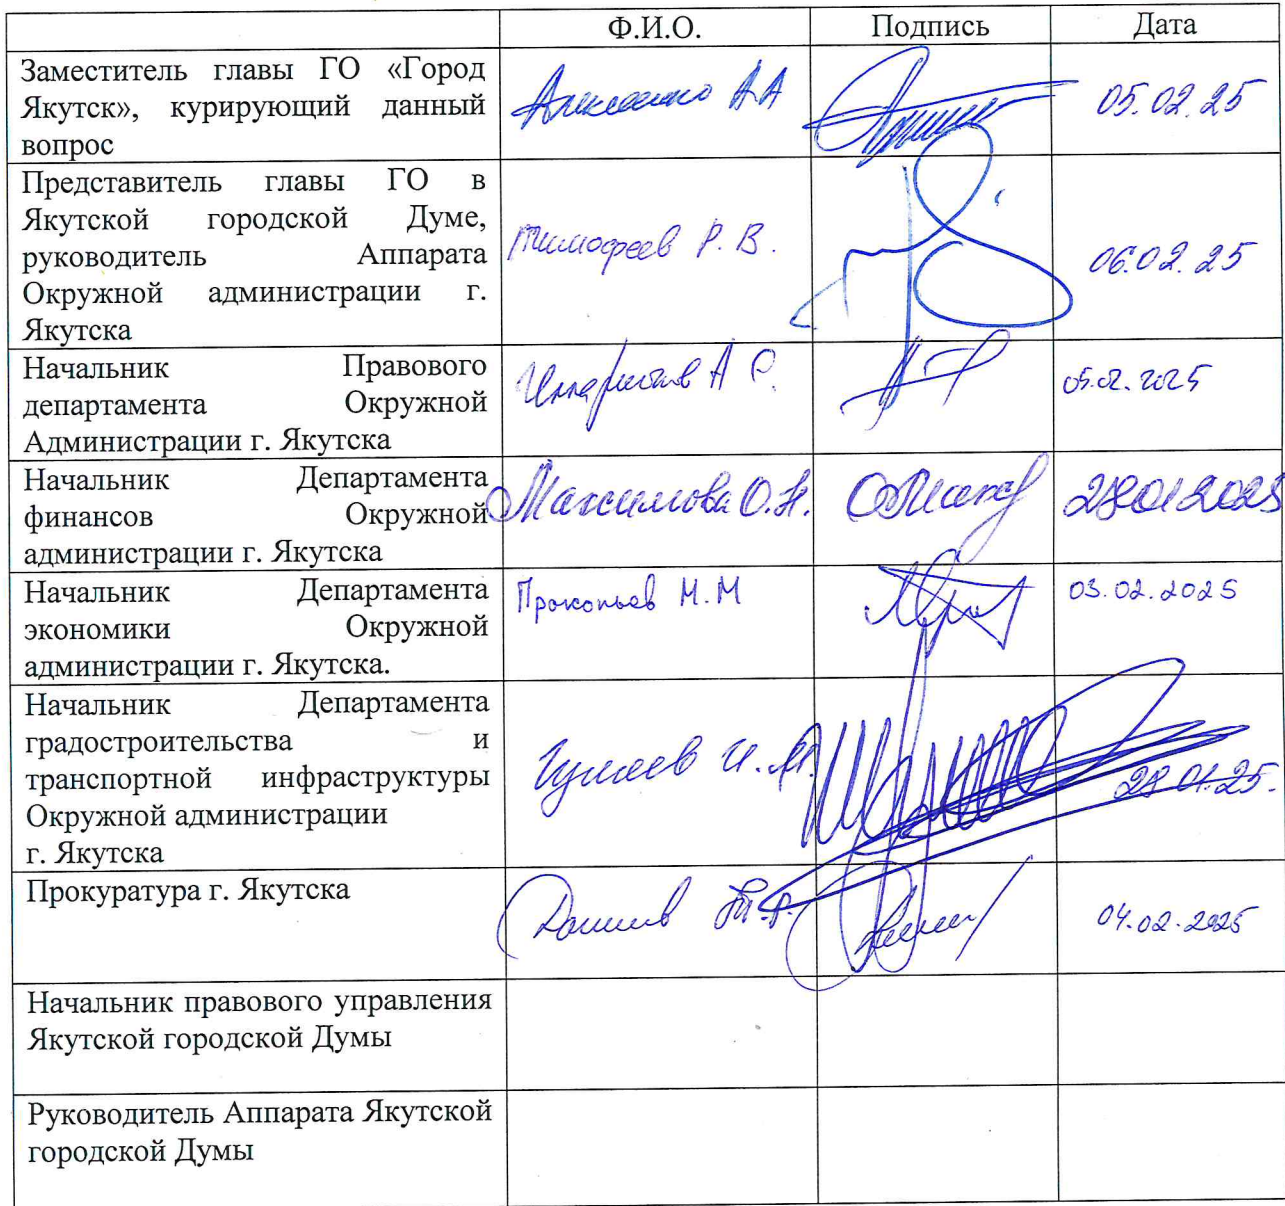 Ф.И.О. Подпись Дата
Заместитель главы ГО «Город
Якутск», курирующий данный
вопрос
А.А 05.02.25
Представитель главы ГО в
Якутской городской Думе,
руководитель Аппарата
Окружной администрации г.
Якутска
Тимофеев Р.В. 06.02.25
Начальник Правового
департамента Окружной
Администрации г. Якутска
Илларионов А С. 05.02.2025
Начальник Департамента
финансов Окружной
администрации г. Якутска
Максимова О.Н. 28012025
Начальник Департамента
экономики Окружной
администрации г. Якутска.
Прокопьев М.М 03.02.2025
Начальник Департамента
градостроительства и
транспортной инфраструктуры
Окружной администрации
г. Якутска
И.М. 28.01.25.
Прокуратура г. Якутска
04.02.2025
Начальник правового управления
Якутской городской Думы
Руководитель Аппарата Якутской
городской Думы